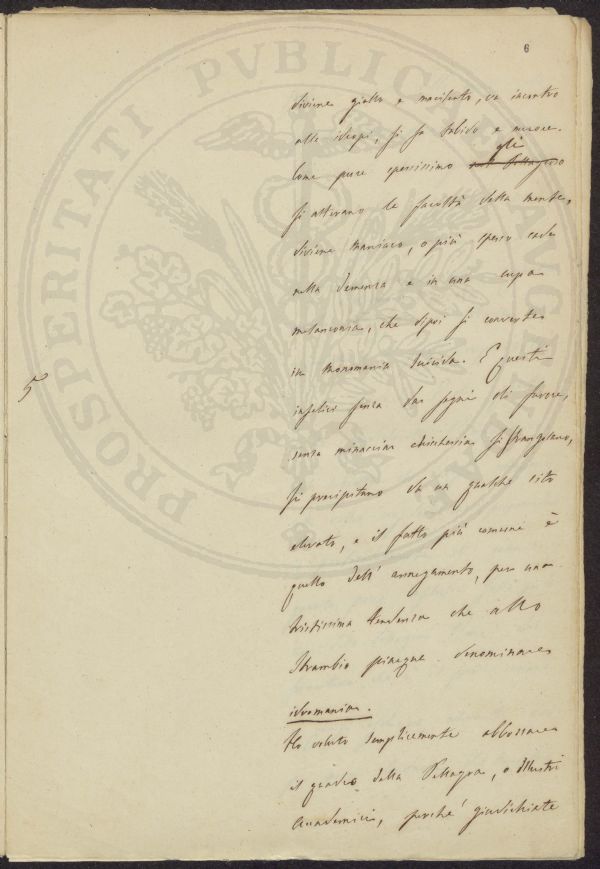 6
diviene giallo e macilento, va incontro
alle idropi, si fa tabido e muore.
Come pure spessissimo gli
si alterano le facoltà della mente,
diviene maniaco, o più spesso cade
nella demenza e in una cupa
melanconia, che dipoi si converte
in monomania suicida. E questi
5
infelici senza dar segni di furore,
senza minacciar chicchessia si strangolano,
si precipitano da un qualche sito
elevato, e il fatto più comune è
quello dell' annegamento, per una
tristissima tendenza che allo
Strambio piacque denominare
idromania.
Ho voluto semplicemente abbozzare
il quadro della Pellagra, o Illustri
Accademici, perché giudichiate
PROSPERITATI PVBLICAE AVGENDAE